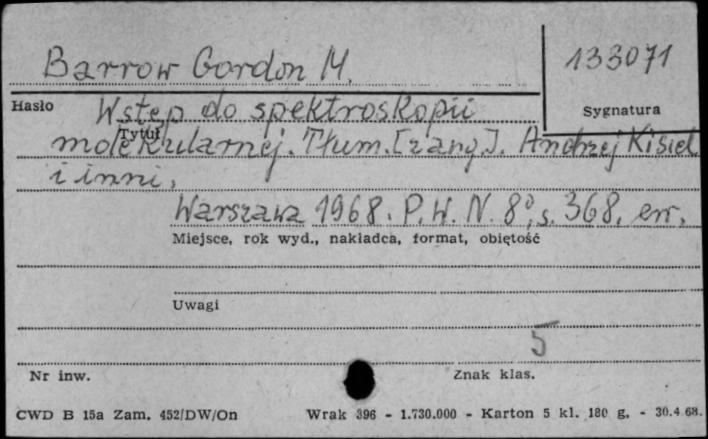 Barrow Gordon M.
133071
Hasło
Sygnatura
Wstęp do spektroskopii
Tytuł
molekularnej. Tłum. [z ang.]. Andrzej Kisiel
i inni,
Warszawa 1968. P.W.N. 8°, s. 368, err.
Miejsce, rok wyd., nakładca, format, objętość
Uwagi
5
Nr inw.
Znak klas.
CWD B 15a Zam. 452/DW/On Wrak 396 - 1.730.000 - Karton 5 kl. 180 g. - 30.4.68.